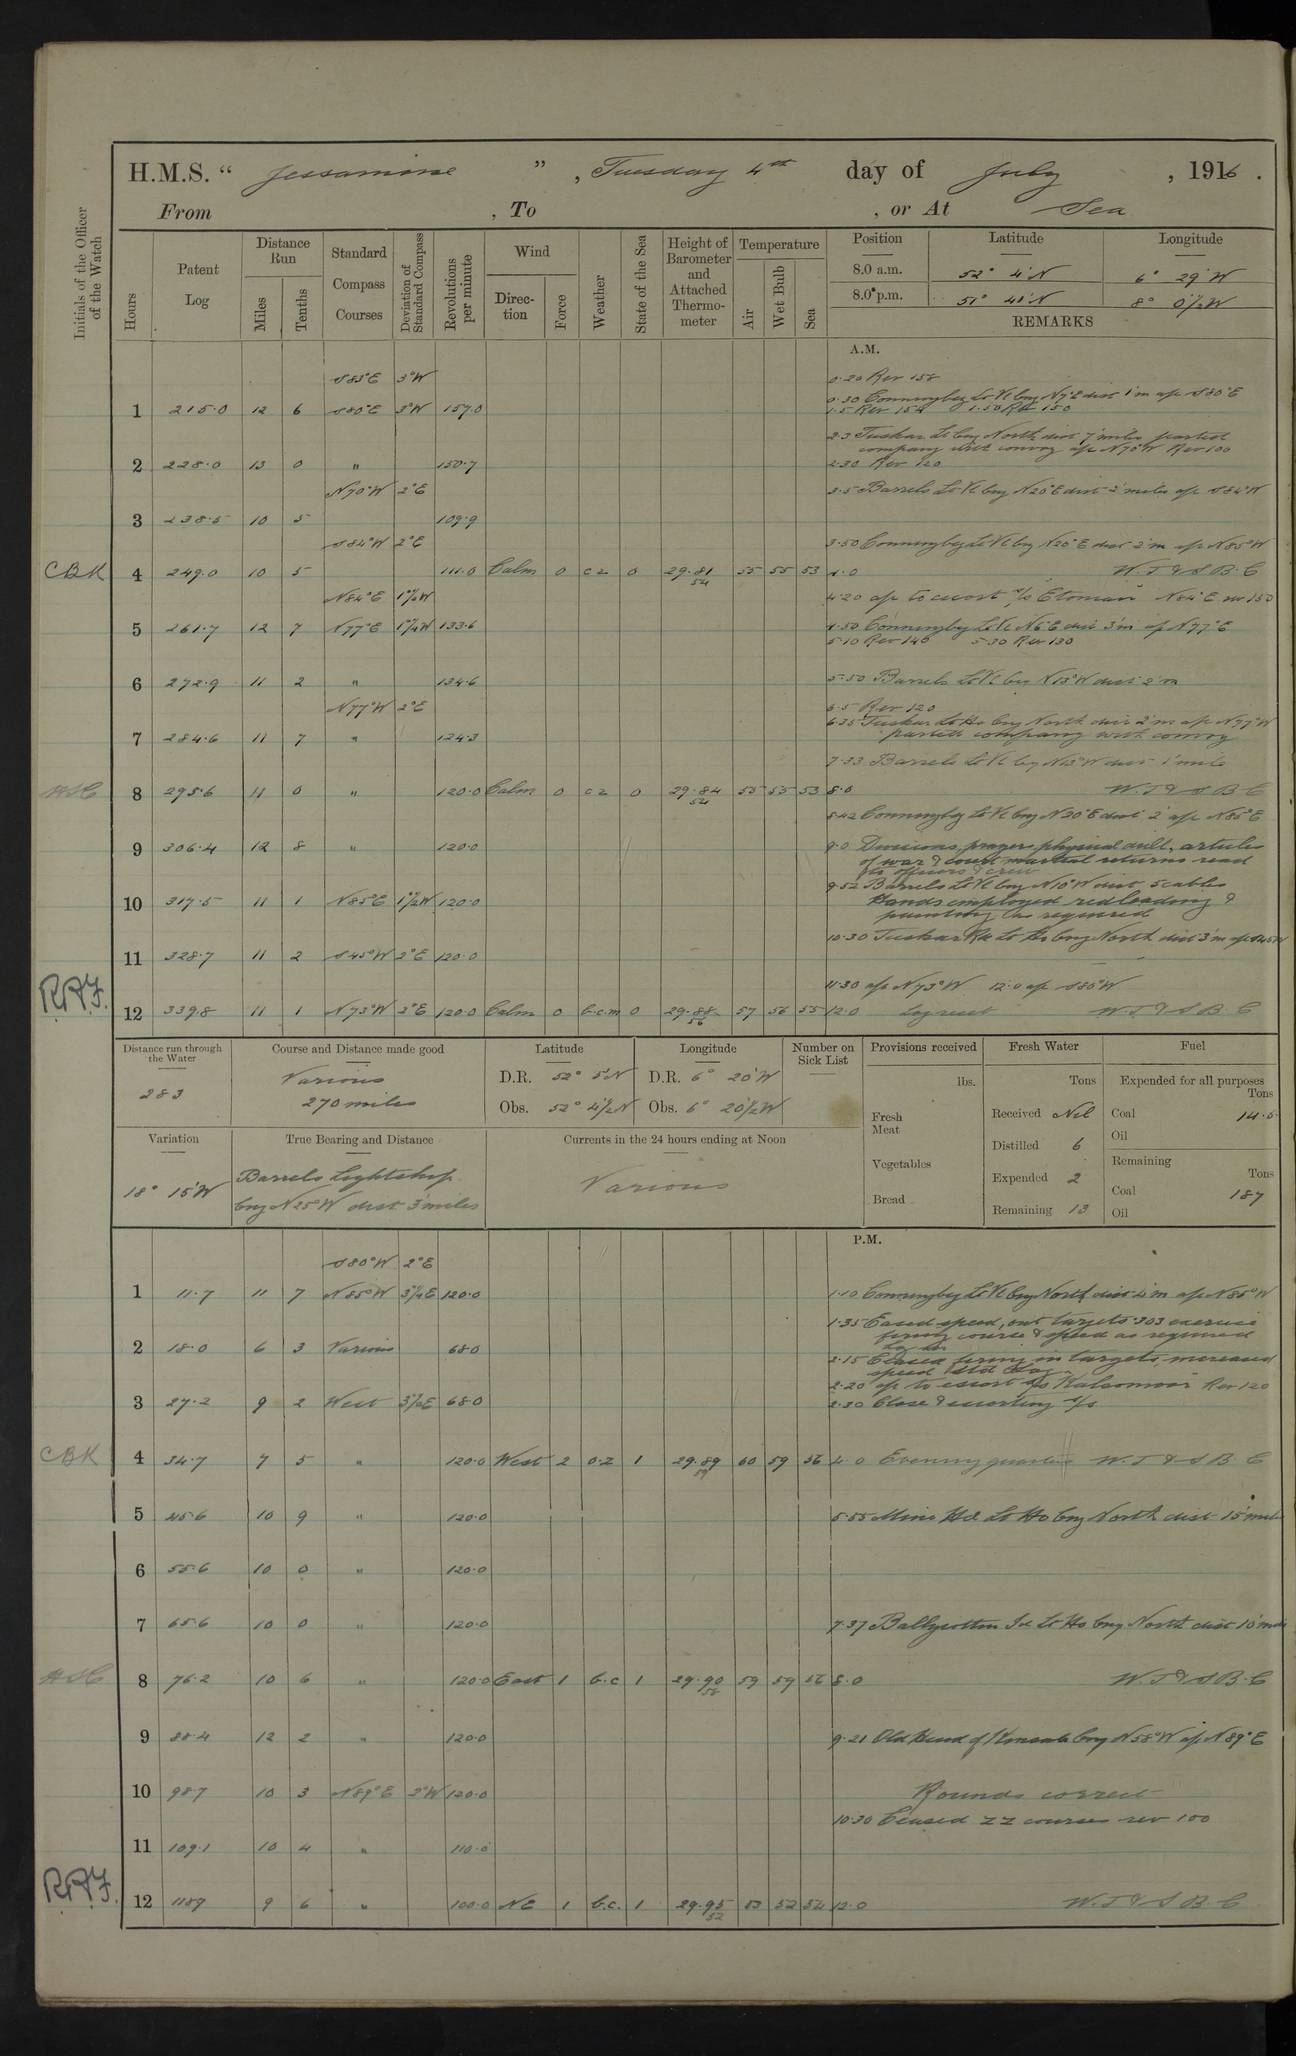 H.M.S. “ Jessamine ” , Tuesday 4th day of July , 1916 .
From , To , or At Sea
Initials of the Officer of the Watch
Hours
Patent Log
Distance Run
Miles
Tenths
Standard Compass Courses
Deviation of Standard Compass
Revolutions per minute
Wind
Direc-tion
Force
Weather
State of the Sea
Height of Barometer and Attached Thermo-meter
Temperature
Air
Wet Bulb
Sea
Position Latitude Longitude
8.0 a.m. 52° 4' N 6° 29' W
8.0 p.m. 51° 41' N 8° 0½' W
REMARKS
A.M.
S83°E 3°W 0.20 Rev 158
0.30 Conningbeg Lt Vl brg dist 1m a/c S80°E
1 215.0 12 6 S80°E 3°W 157.0 1.5 Rev 154 1.50 Rev 150
2.3 Tuskar Lt brg North dist 7 miles parted
company with convoy a/c N70°W Rev 100
2 228.0 13 0 " 150.7 2.30 Rev 120
N70°W 2°E 3.5 Barrels Lt Vl brg N20°E dist 2 miles a/c S84°W
3 238.5 10 5 109.9
S84°W 2°E 3.50 Conningbeg Lt Vl brg N20°E dist 2'm a/c N85°W
CBK 4 249.0 10 5 111.0 Calm 0 cz 0 29.81 54 55 55 53 4.0 W.T & S.B.C
N84°E 1½W 4.20 a/c to escort s/s N84°E rev 150
5 261.7 12 7 N77°E 1¼W 133.6 4.50 Conningbeg Lt Vl N6°E dist 3'm a/c N77°E
5.10 Rev 140 5.30 Rev 130
6 272.9 11 2 " 134.6 5.50 Barrels Lt Vl brg N13°W dist 2'm
N77°W 2°E 6.5 Rev 120
6.35 Tuskar Lt Ho brg North dist 2'm a/c N77°W
7 284.6 11 7 " 124.3 parted company with convoy
7.33 Barrels Lt Vl brg N13°W dist 1 mile
8 295.6 11 0 " 120.0 Calm 0 cz 0 29.84 54 55 55 53 8.0 W.T & S.B.C
8.42 Conningbeg Lt Vl brg N20°E dist 2' a/c N85°E
9 306.4 12 8 " 120.0 9.0 Divisions, prayers physical drill, articles
of war & court martial returns read
to officers & crew
9.52 Barrels Lt Vl brg N10°W dist 5 cables
10 317.5 11 1 N85°E 1½W 120.0 Hands employed redleading &
painting as required
10.30 Tuskar Rk Lt Ho brg North dist 3'm a/c S45W
11 328.7 11 2 S45°W 2°E 120.0
11.30 a/c N73°W 12.0 a/c S80°W
R.A.F. 12 339.8 11 1 N73°W 3°E 120.0 Calm 0 b.c.m 0 29.88 56 57 56 55 12.0 Log reset W.T & S.B.C
Distance run through the Water
283
Course and Distance made good
Various
270 miles
Latitude
D.R. 52° 5'N
Obs. 52° 4½'N
Longitude
D.R. 6° 20'W
Obs. 6° 20½'W
Number on Sick List
Variation
18° 15'W
True Bearing and Distance
Barrels Lightship
brg N25°W dist 3 miles
Currents in the 24 hours ending at Noon
Various
Provisions received
lbs.
Fresh Meat
Vegetables
Bread
Fresh Water
Tons
Received Nil
Distilled 6
Expended 2
Remaining 13
Fuel
Expended for all purposes
Tons
Coal 14.5
Oil
Remaining
Tons
Coal 187
Oil
P.M.
S80°W 2°E
1 11.7 11 7 N85°W 3½E 120.0 1.10 Conningbeg Lt Vl brg North dist 4'm a/c N85°W
1.35 Eased speed, out targets .303 exercise
firing course & speed as required
2 18.0 6 3 Various 68.0
2.15 Ceased firing in targets, increased
speed
2.20 a/c to escort s/s Rev 120
3 27.2 9 2 West 3½E 68.0 2.30 Close & escorting s/s
CBK 4 34.7 7 5 " 120.0 West 2 o.z 1 29.89 59 60 59 56 4.0 Evening quarters W.T & S.B.C
5 45.6 10 9 120.0 5.55 Mine Hd Lt Ho brg North dist 15 miles
6 55.6 10 0 " 120.0
7 65.6 10 0 " 120.0 7.37 Ballycotton Id Lt Ho brg North dist 10 miles
8 76.2 10 6 " 120.0 East 1 b.c 1 29.90 58 59 59 56 8.0 W.T & S.B.C
9 88.4 12 2 " 120.0 9.21 Old Head of Kinsale brg N58°W a/c N89°E
10 98.7 10 3 N89°E 2°W 120.0 Rounds correct
10.30 Ceased ZZ courses rev 100
11 109.1 10 4 " 110.0
R.A.F. 12 118.9 9 6 " 100.0 NE 1 b.c. 1 29.95 52 53 52 54 12.0 W.T & S.B.C